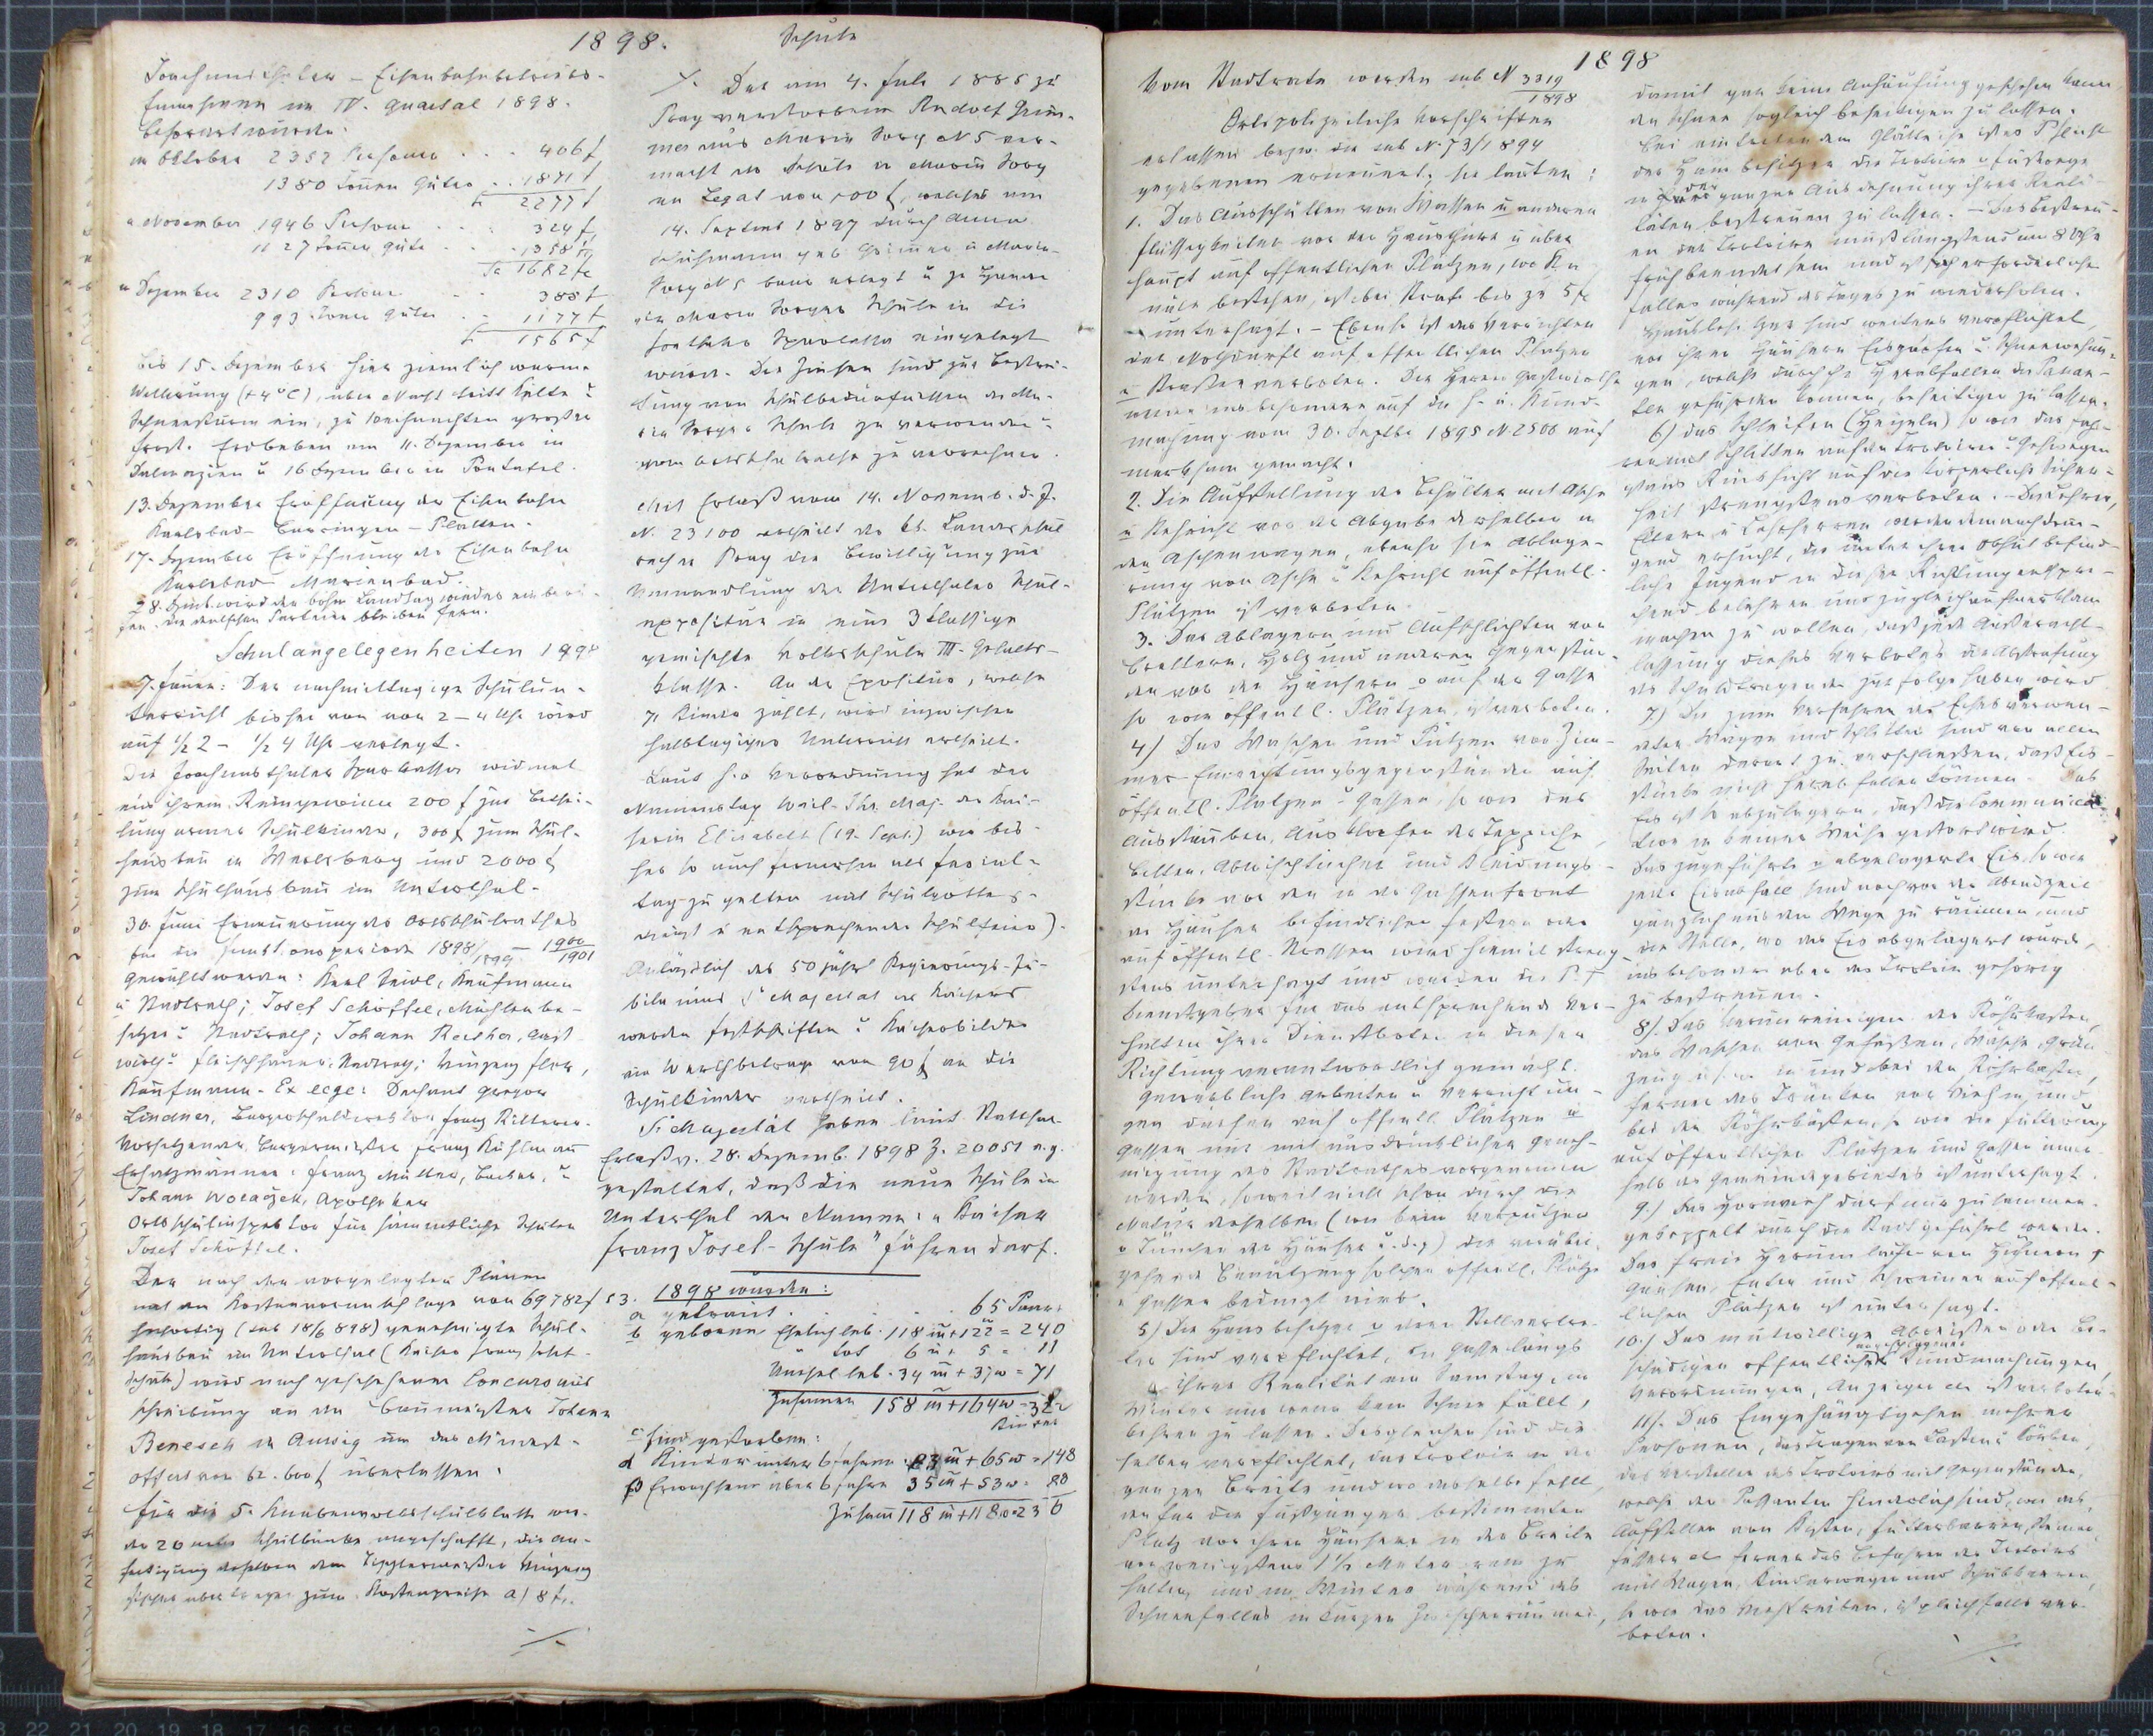 1898. Schule
Joachimsthaler - Eisenbahnbetriebs-
Einnahmen im IV. Quartal 1898.
befördert wurden:
im Oktober 2352 Personen . . . 406 f
1380 Tonnen Güter . . 1871 f
2277 f
" November 1946 Personen . . . 324 f
1127 Tonnen Güter . . . 1358 f
Sa 1682 f
" Dezember 2310 Personen . . 388 f
993 Tonnen Güter . . 1177 f
1565 f
Bis 15. Dezember hier ziemlich warme
Witterung (+4°C), über Nacht tritt Kälte u
Schneesturm ein, zu Weihnachten großer
Frost. Erdbeben am 11. Dezember in
Dalmazien u 16 Dezember in Pontafel.
13. Dezember Eröffnung der Eisenbahn
Karlsbad - Bärringen - Platten.
17. Dezember Eröffnung der Eisenbahn
Karlsbad Marienbad.
28. Dezemb. wird der böhm Landtag wieder einberu-
fen. Die deutschen Parteien bleiben fern.
Schulangelegenheiten 1898
7. Jänner: Der nachmittagige Schulun-
terricht bisher von 2 - 4 Uhr wird
auf ½ 2 - ½ 4 Uhr verlegt.
Die Joachimsthaler Sparkassa widmet
aus ihrem Reingewinn 200 f zur Bethei-
lung armer Schulkinder, 300 f zum Schul-
hausbau in Werlsberg und 2000 f
zum Schulhausbau im Unterthal.
30. Juni Erneuerung des Ortsschulrathes
für die Funktionsperiode 1898/1899 - 1900/1901
Gewählt werden: Karl Seidl, Kaufmann
u Stadtrath; Josef Schöffel, Mühlenbe-
sitzer u Stadtrath; Johann Reicher, Gast
wirth u Fleischhauer, Stadtrath; Vinzenz Flor,
Kaufmann. Ex lege: Dechant Gregor
Lindner, Bürgerschuldirektor Franz Ritterer.
Vorsitzender Bürgermeister Franz Kühlmann
Ersatzmänner: Franz Müller, Bäcker, u
Johann Woraczek, Apotheker
Ortsschulinspektor für sämmtliche Schulen
Josef Schöffel.
Der nach den vorgelegten Plänen
mit dem Kostenvoranschlage von 69782 f
(sub 18/6 898) genehmigte Schul-
hausbau im Unterthal (Kaiser Franz Josef-
Schule) wird nach geschehener Concursaus
schreibung an den Baumeister Johann
Benesch in Aussig um das Mindest-
offert von 62.600 f überlassen.
Für die 5. Knabenvolksschulklasse wer-
den 20 neue Schulbänke angeschafft, die An-
fertigung derselben dem Tischlermeister Vinzenz
Fischer übertragen zum Kostenpreise a) 8 f.
./.
./. Der am 4. Feb. 1885 zu
Prag verstorbene Rudolf Grim-
mer aus Maria Sorg N 5 ver-
macht der Schule in Maria Sorg
ein Legat von 100 f, welches am
14. Septemb 1897 durch Anna
geb Grimmer in Maria-
Sorg N 5 baar erlegt u zu Handen
der Maria Sorger Schule in die
Sparkassa eingelegt
wurde. Die Zinsen sind zur Bestrei-
tung von Schulbedürfnissen der Ma-
ria Sorger Schule zu verwenden u
vom Ortsschulrathe zu verrechnen.
Mit Erlaß vom 14. Novemb. d. J.
N. 23100 ertheilt der kk. Landesschul
rath in Prag die Bewilligung zur
Umwandlung der Unterthaler Schul-
expositur in eine 3 klassige
gemischte Volksschule III. Gehalts-
klasse. An der Expositur, welche
71 Kinder zählt, wird inzwischen
halbtagiger Unterricht ertheilt.
Laut h. o Verordnung hat der
Namenstag weil. Ihr. Maj. der Kai-
serin Elisabeth (19. Sept.) wie bis-
her so auch fernerhin als Ferial-
tag zu gelten mit Schulgottes-
dienst u entsprechender Schulfeier).
Anläßlich des 50 jährl Regierungs-Ju-
biläums Sr Majestät des Kaisers
werden Festschriften u Kaiserbilder
im Werthbetrage von 90 f an die
Schulkinder vertheilt.
Se Majestät haben laut Statthal
Erlaß v. 28. Dezemb. 1898 Z. 20051 a.g.
gestattet, daß die neue Schule in
Unterthal den Namen: „Kaiser
Franz Josef-Schule" führen darf.
1898 wurden:
a getraut . . . . 65 Paare
b geboren Ehelich leb. 118 m + 122 w = 240
" tot 6 m + 5 = 11
Unehel leb. 34 m + 37 w = 71
Zusammen 158 m + 164 w = 322
Kinder
c sind gestorben:
α Kinder unter 6 Jahren . 83 m + 65 w = 148
β Erwachsene über 6 Jahre 35 m + 53 w = 88
Zusam 118 m + 118 w = 236
1898
Vom Stadtrate werden sub N 3319/1898
Ortspolizeiliche Vorschriften
erlassen bezw. die sub N. 73/1894
gegebenen erneuert; sie lauten:
1. Das Ausschütten von Wasser u anderen
Flüssigkeiten vor der Hausthüre u über
haupt auf öffentlichen Plätzen, wo Ka
näle bestehen, ist bei Strafe bis zu 5 f
untersagt. - Ebenso ist das Verrichten
der Nothdurft auf öffentlichen Plätzen
u Strassen verboten. Die Herren Gastwirthe
werden insbesondere auf die h. ä. Kund-
machung vom 30. Septbr 1895 N. 2506 auf
merksam gemacht.
2. Die Aufstellung der Behälter mit Asche
u Kehricht vor der Abgabe derselben in
den Aschenwagen, ebenso die Ablage-
rung von Asche u Kehricht auf öffentl.
Plätzen ist verboten.
3. Das Ablagern und Aufschlichten von
Brettern, Holz und anderen Gegenstän-
den vor den Häusern o auf der Gasse
so wie öffentl. Plätzen, ist verboten.
4) Das Waschen und Putzen von Zim-
mer Einrichtungsgegenständen auf
öffentl. Plätzen u Gassen, so wie das
Ausstauben, Ausklopfen der Teppiche,
Betten, Abwischtücher und Kleidungs-
stücke vor den in der Gassenfront
der Häuser befindlichen Fenstern oder
auf öffentl. Strassen wird hiemit streng
stens untersagt und werden die P. T
Dienstgeber für das entsprechende Ver-
halten ihrer Dienstboten in dieser
Richtung verantwortlich gemacht.
Gewerbliche Arbeiten u Verrichtun-
gen dürfen auf öffentl. Plätzen u
Gassen nur mit ausdrücklicher Geneh-
migung des Stadtrathes vorgenommen
werden, soweit nicht schon durch die
Natur derselben (wie beim Verputzen
o Tünchen der Häuser u. d. g) die vorüber
gehende Benützung solcher öffentl. Plätze
u Gassen bedingt wird.
5) Die Hausbesitzer o deren Stellvertre-
ter sind verpflichtet, die Gasse längs
ihrer Realität am Samstag, im
Winter nur wenn kein Schnee fällt,
kehren zu lassen. Desgleichen sind die-
selben verpflichtet, das Trotoir in der
ganzen Breite und wo dasselbe fehlt,
den für die Fußgänger bestimmten
Platz vor ihren Häusern in der Breite
von wenigstens 1½ Meter rein zu
halten und im Winter während des
Schneefalles in kurzen Zwischenräumen,
damit gar keine Anhäufung geschehen kann,
den Schnee sogleich beseitigen zu lassen.
Bei eintretendem Glatteise ist es Pflicht
der Hausbesitzer die Trotoire o Fußwege
in der ganzen Ausdehnung ihrer Reali-
täten bestreuen zu lassen. - Das Bestreu-
en der Trotoire muß längstens um 8 Uhr
früh beendet sein und ist solches erforderlichen
falles während des Tages zu wiederholen.
Hausbesitzer sind weiters verpflichtet,
vor ihren Häusern Eiszapfen u Schneewehun-
gen, welche durch ihr Herabfallen die Passan-
ten gefährden können, beseitigen zu lassen.
6) Das Schleifen (Heigeln) so wie das Fah-
ren mit Schlitten auf den Trotoiren u Gehwegen
ist aus Rücksicht auf die körperliche Sicher-
heit strengstens verboten. - Die Lehrer,
Eltern u Lehrherren werden demnach drin-
gend ersucht, die unter ihrer Obhut befind-
liche Jugend in dieser Richtung entspre-
chend belehren und zugleich aufmerksam
machen zu wollen, daß jede Außeracht-
lassung dieses Verbotes die Abstrafung
der Schuldtragenden zur Folge haben wird.
7.) Die zum Verfahren des Eises verwen-
deten Wagen und Schlitten sind von allen
Seiten derart zu verschliessen, daß Eis-
stücke nicht herabfallen können. Das
Eis ist so abzulagern, daß die Communica-
tion in keiner Weise gestört wird.
Das zugeführte o abgelagerte Eis, so wie
jeder Eisabfall sind noch vor der Abendzeit
gänzlich aus dem Wege zu räumen, und
die Stelle, wo das Eis abgelagert wurde,
insbesondere aber das Trotoir gehörig
zu bestreuen.
8). Das Verunreinigen der Röhrkasten,
das Waschen von Gefäßen, Wäsche, Grün
zeug u s. w. in und bei den Röhrkasten,
ferner das Tränken von Vieh in und
bei den Röhrkästen, so wie die Fütterung
auf öffentlichen Plätzen und Gassen inner-
halb des Gemeindegebietes ist untersagt.
9.) Das Hornvieh darf nur zusammen-
gekoppelt durch die Stadt geführt werden.
Das freie Herumlaufen von Hühnern,
Gänsen, Enten und Schweinen auf öffent-
lichen Plätzen ist untersagt.
10.) Das mutwillige Abreißen oder Be-
schädigen öffentlicher Kundmachungen,
Verordnungen, Anzeigen etc ist verboten.
11). Das Eingehängtgehen mehrer
Personen, das Tragen von Lasten u Körben,
das Verstellen des Trotoirs mit Gegenständen,
welche den Passanten hinderlich sind, wie das
Aufstellen von Kisten, Futterbarren, Steinen,
Fässern etc ferner das Befahren der Trotoirs
mit Wagen, Kinderwagen und Schubkarren,
so wie das Viehtreiben, ist gleichfalls ver-
boten.
./.